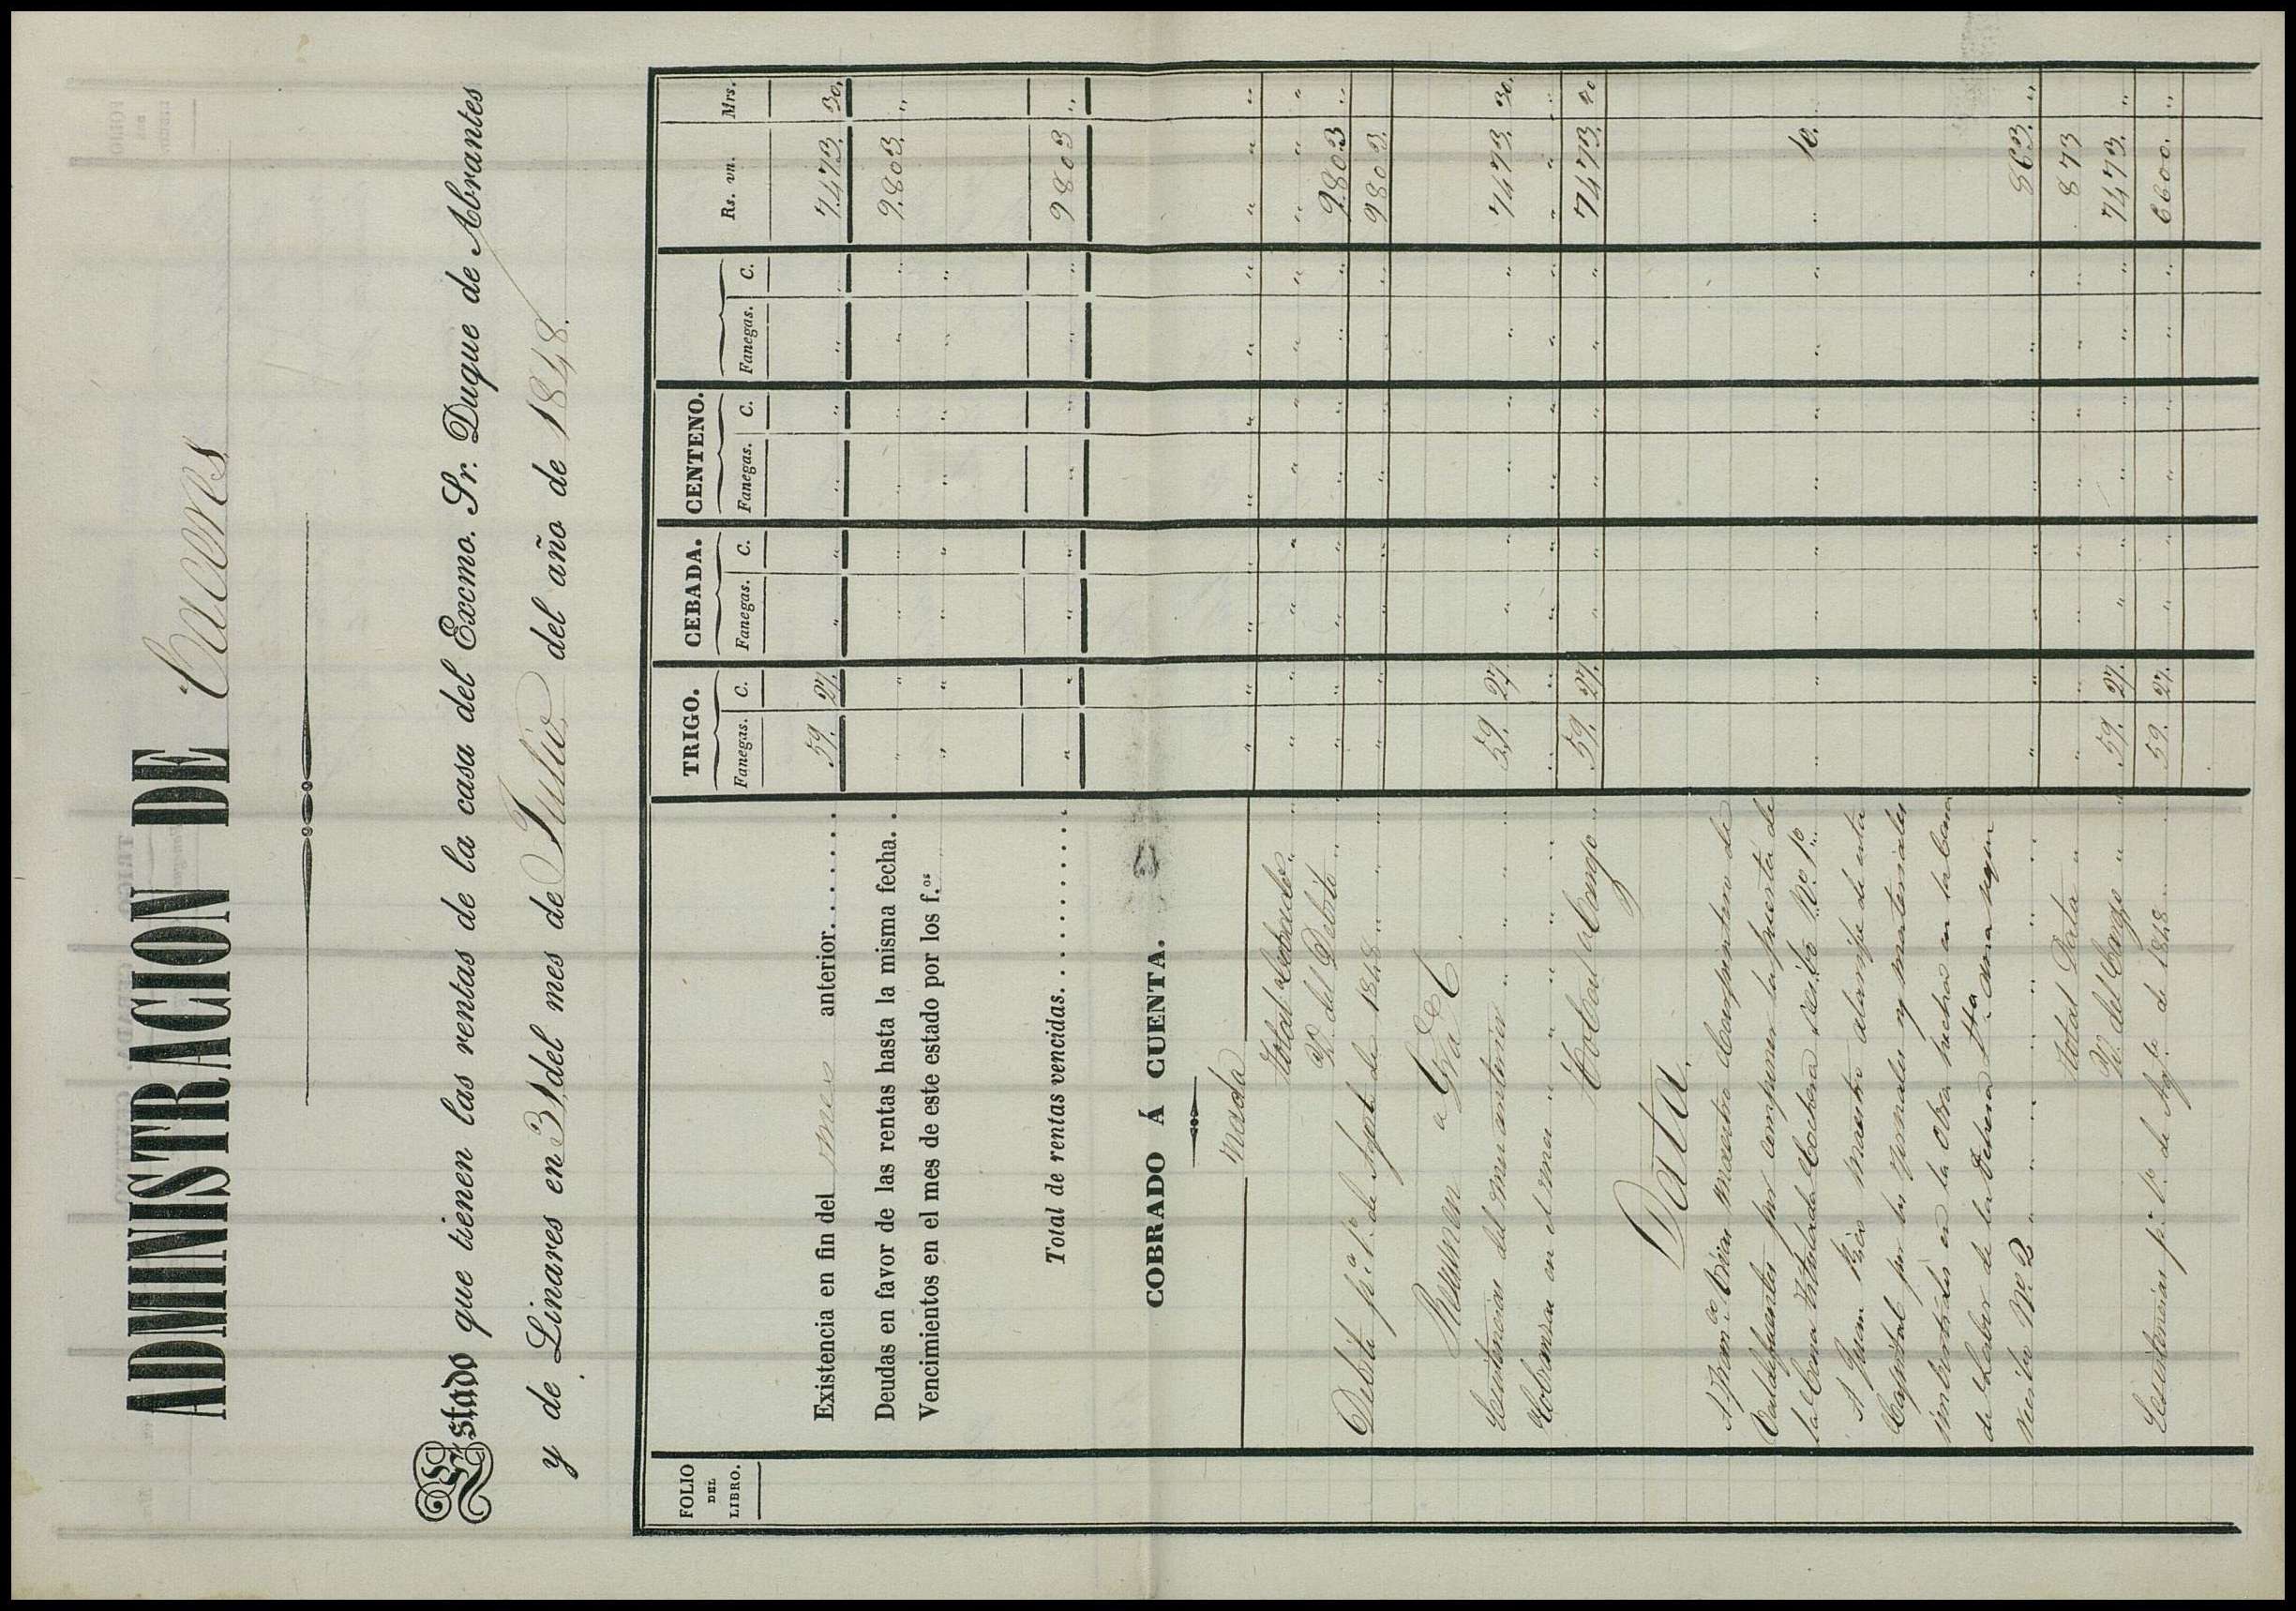 ADMINISTRACION DE Caceres
Estado que tienen las rentas de la casa del Excmo. Sr. Duque de Abrantes
y de Linares en 31 del mes de Julio del año de 1848.
FOLIO DEL LIBRO. TRIGO. CEBADA. CENTENO.
Fanegas. C. Fanegas. C. Fanegas. C. Fanegas. C. Rs. vn. Mrs.
Existencia en fin del mes anterior....... 59. 27. " " " " " " 7473. 30.
Deudas en favor de las rentas hasta la misma fecha. . " " " " " " " " 9803. "
Vencimientos en el mes de este estado por los f.os " " " " " " " " "
Total de rentas vencidas........... " " " " " " " " 9803 "
COBRADO Á CUENTA.
Nada " " " " " " " " " "
Total Cobrado " " " " " " " " " " "
Yd. del Debito " " " " " " " " " 9803 "
Debito p.a 1.o de Agosto de 1848 " " " " " " " " " " 9803.
Resumen
Existencias del mes anterior " " " 59. 27 " " " " " " 7473 30.
Cobranza en el mes " " " " " " " " " " " " "
Total Cargo " 59. 27. " " " " " " 7473. 30
Data.
A Fran.co Maestro Carpintero de
por componer la puerta de
la Casa titulada Cochera recibo N.o 1.o " " " " " " " " " 10.
A Juan Maestro alarife de esta
Capital por los jornales y materiales
invertidos en la obra hecha en la Casa
de Labor de la Dehesa
recibo N.o 2 " " " " " " " " " " " " 863. "
Total Data " " " " " " " " " 873
Yd. del Cargo " 59. 27. " " " " " " 7473. "
Existencias p.a 1.o de Ag.to de 1848 " 59. 27. " " " " " " 6600. "